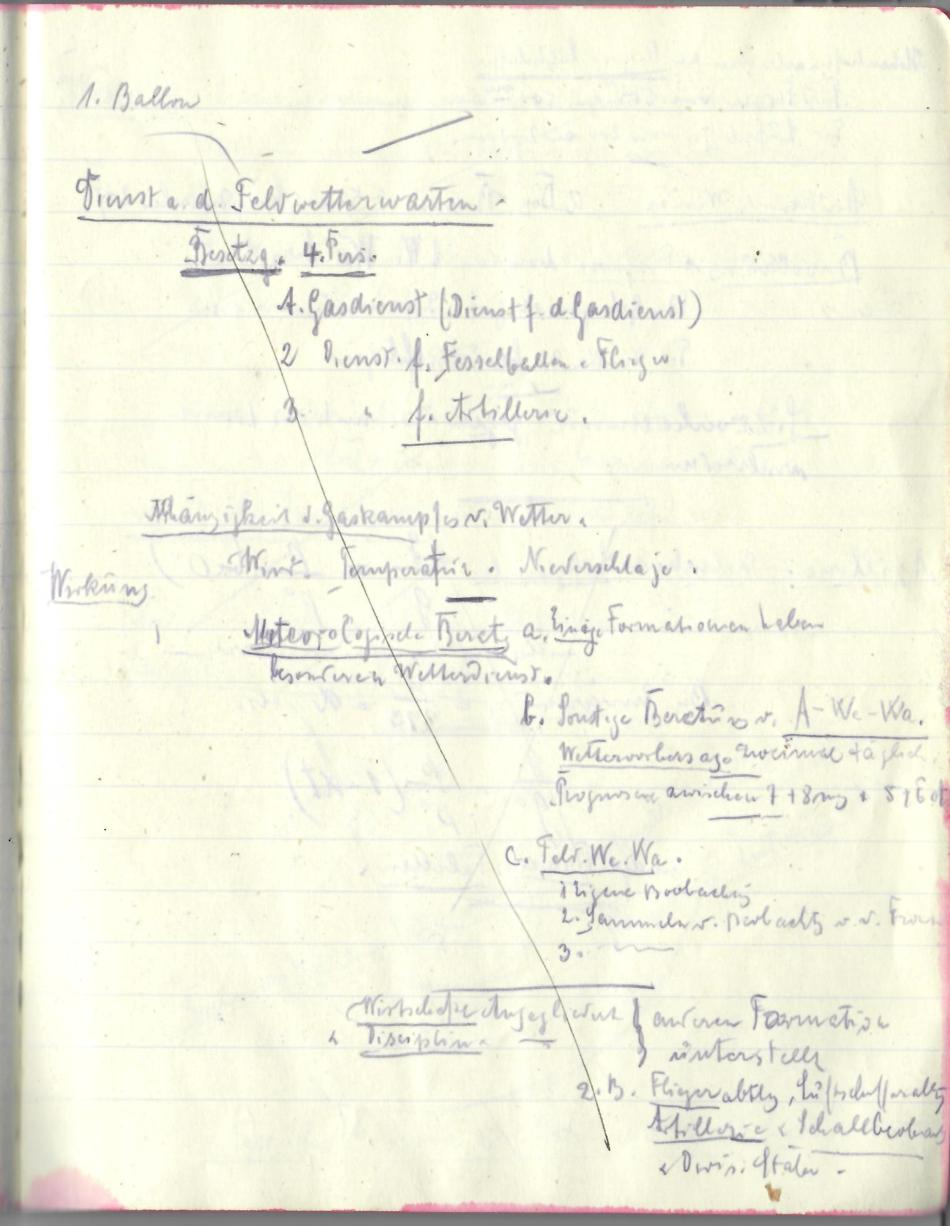 1. Ballon
Dienst a. d. Feldwetterwarten.
Besetzg. 4. Pers.
1. Gasdienst (Dienst f. d. Gasdienst)
2 Dienst. f. Fesselballon u. Flieger
3 " f. Artillerie.
Abhängigkeit d. Gaskampfes v. Wetter.
Wind Temperatur. Niederschläge.
Wirkung
1 Meteorologische Beratg a. Einige Formationen haben
besonderen Wetterdienst.
b. Sonstige Beratung v. A-We-Wa.
Wettervorhersage zweimal täglich
Prognose zwischen 7 + 8 mg u 5 + 6
c. Feld. We. Wa.
1 Eigene Beobachtg
2. Sammeln v. Beobachtg v. d. Front
3.
Wirtschaftl. Angegliedert } anderen Formation
u Disciplin. unterstellt
z. B. Fliegerabtlg, Luftschifferabtlg
Artillerie u Schallbeobach
u Divis. Stäbe.